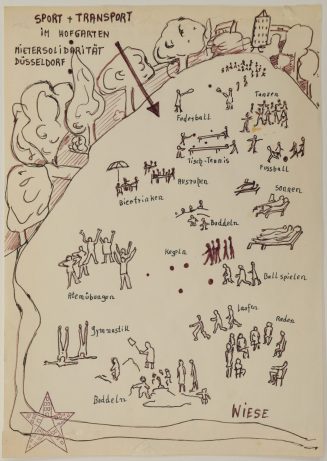 SPORT + TRANSPORT
IM HOFGARTEN
MIETERSOLIDARITÄT
DÜSSELDORF
Tanzen
Federball
Tisch-Tennis
Fussball
Ausruhen
Sonnen
Biertrinken
Buddeln
Kegeln
Ball spielen
Atemübungen
Laufen
Reden
Gymnastik
Buddeln
WIESE